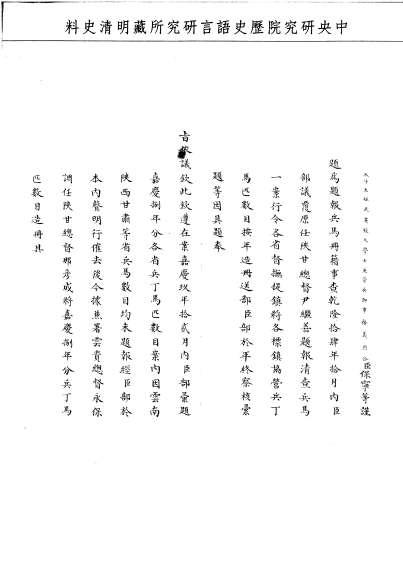 中央研究院歷史語言研究所藏明清史料
太子太保武英殿大學士管兵部事務臣保寧等謹
題為題報兵馬冊籍事查乾隆拾肆年拾月內臣
部議覆原任陝甘總督尹繼善題報清查兵馬
一案行令各省督撫提鎮將各標鎮協營兵丁
馬匹數目按年造冊送部臣部於年終察核彙
題等因具題奉
旨依議欽此欽遵在案嘉慶玖年拾貳月內臣部彙題
嘉慶捌年分各省兵丁馬匹數目案內因雲南
陝西甘肅等省兵馬數目均未題報經臣部於
本內聲明行催去後今據兼署雲貴總督永保
調任陝甘總督那彥成將嘉慶捌年分兵丁馬
匹數目造冊具